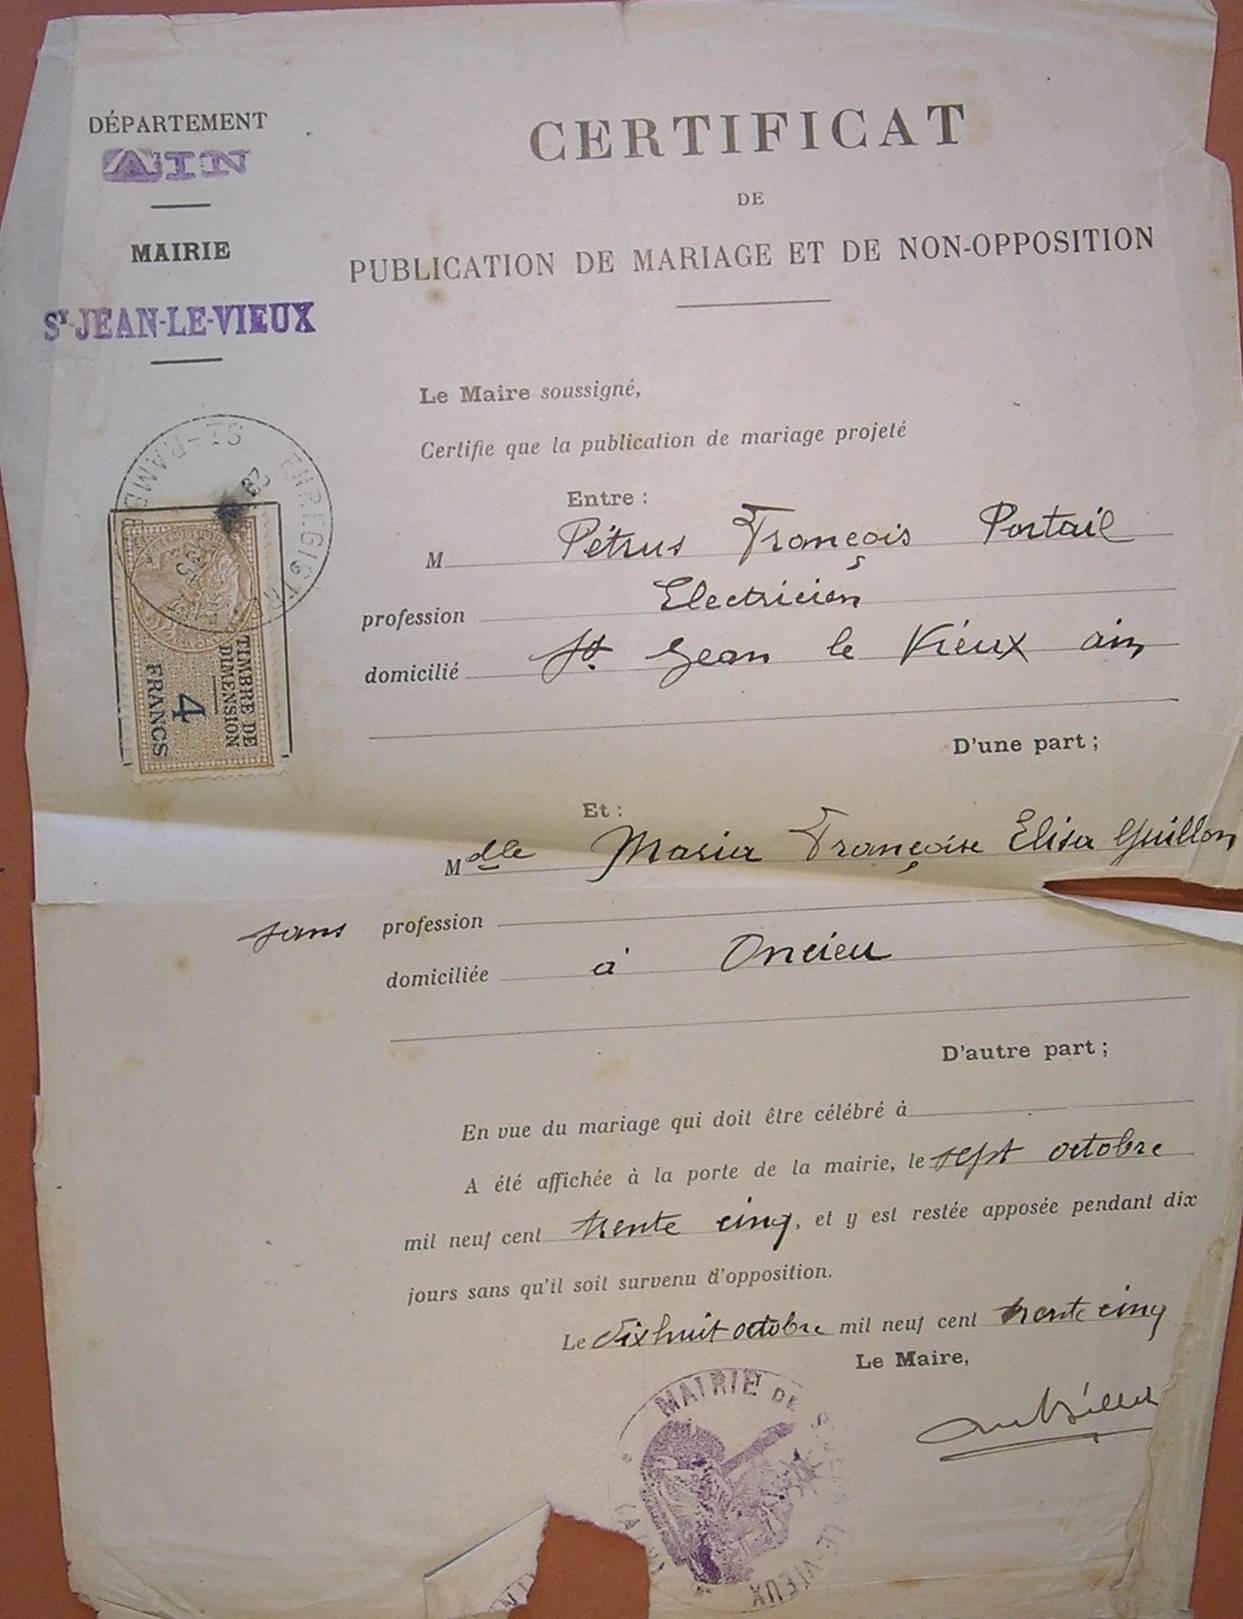 DÉPARTEMENT
AIN
MAIRIE
St-JEAN-LE-VIEUX
CERTIFICAT
DE
PUBLICATION DE MARIAGE ET DE NON-OPPOSITION
Le Maire soussigné,
Certifie que la publication de mariage projeté
Entre :
M Pétrus François Portail
profession Electricien
domicilié St Jean le Vieux ain
D'une part ;
ENREGISTR ST-RAMB
TIMBRE DE
DIMENSION
4
FRANCS
Et :
Mdlle Maria Françoise Elisa Guillon
sans profession
domiciliée à Oncieu
D'autre part ;
En vue du mariage qui doit être célébré à
A été affichée à la porte de la mairie, le sept octobre
mil neuf cent trente cinq, et y est restée apposée pendant dix
jours sans qu'il soit survenu d'opposition.
Le dix huit octobre mil neuf cent trente cinq
Le Maire,
MAIRIE DE LE-VIEUX